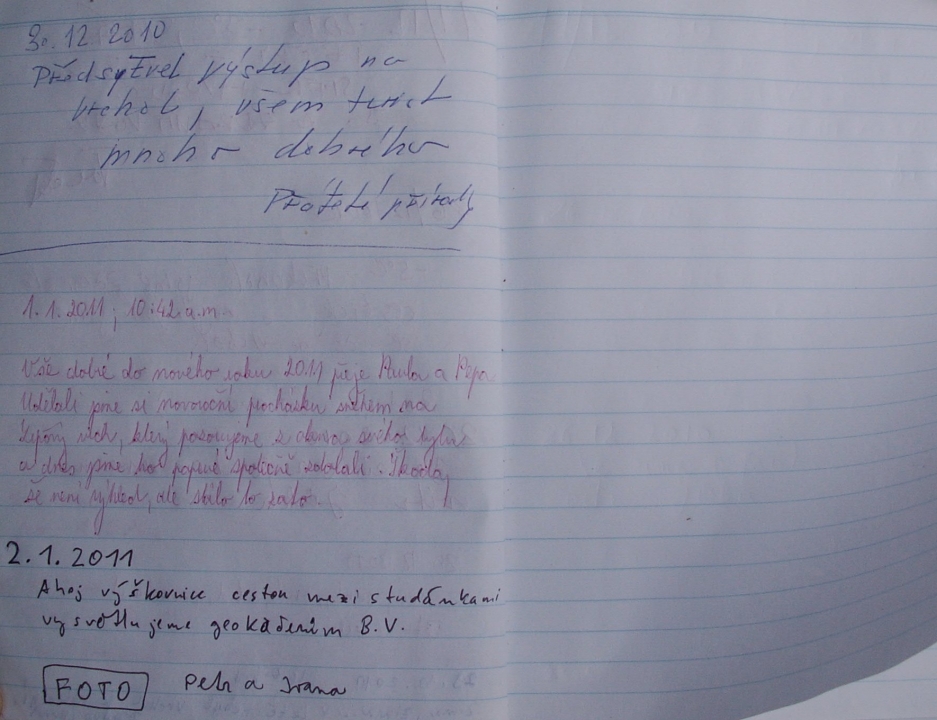 30.12.2010
Předsylvel výstup na
vrchol, všem turist
mnoho dobrého
Přátelé přírody
1.1.2011; 10:42 a.m.
Vše dobré do nového roku 2011 přeje Pavla a Pepa
Udělali jsme si novoroční procházku sněhem na
vrch, který pozorujeme z okna svého bytu
a dnes jsme ho poprvé společně zdolali. Škoda,
že není výhled, ale stálo to zato.
2.1.2011
Ahoj výškovnice cestou mezi studánkami
vysvětlujeme geokačením B.V.
FOTO Petr a Ivana